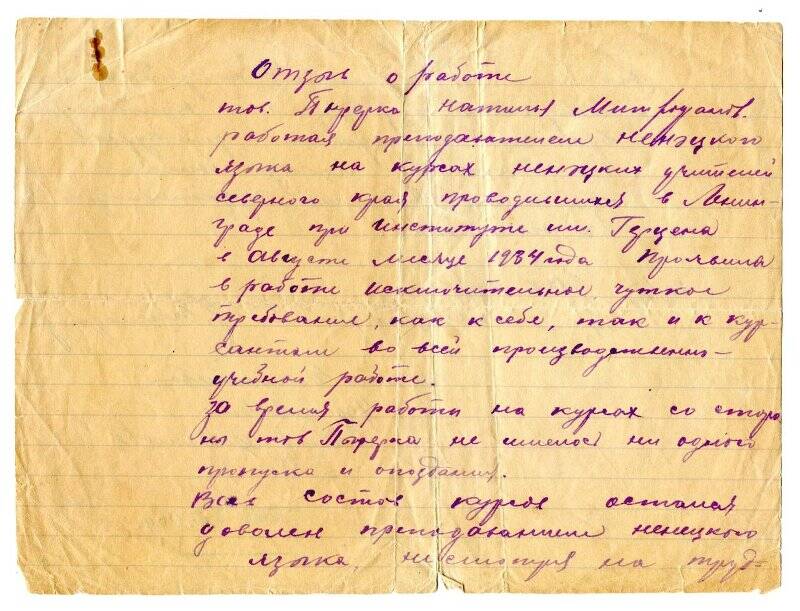 Отзыв о работе
тов. Пырерка Наталья Митрофанов.
работая преподавателем ненэцкого
языка на курсах ненэцких учителей
северного края проводившихся в Ленин-
граде при институте им. Герцена
в Августе месяце 1934 года проявила
в работе исключительное, чуткое
требование, как к себе, так и к кур-
сантам во всей производственно-
учебной работе.
За время работы на курсах со сторо
ны тов Пырерка не имелось ни одного
пропуска и опоздания.
Весь состав курсов остался
доволен преподаванием ненецкого
языка, несмотря на труд-